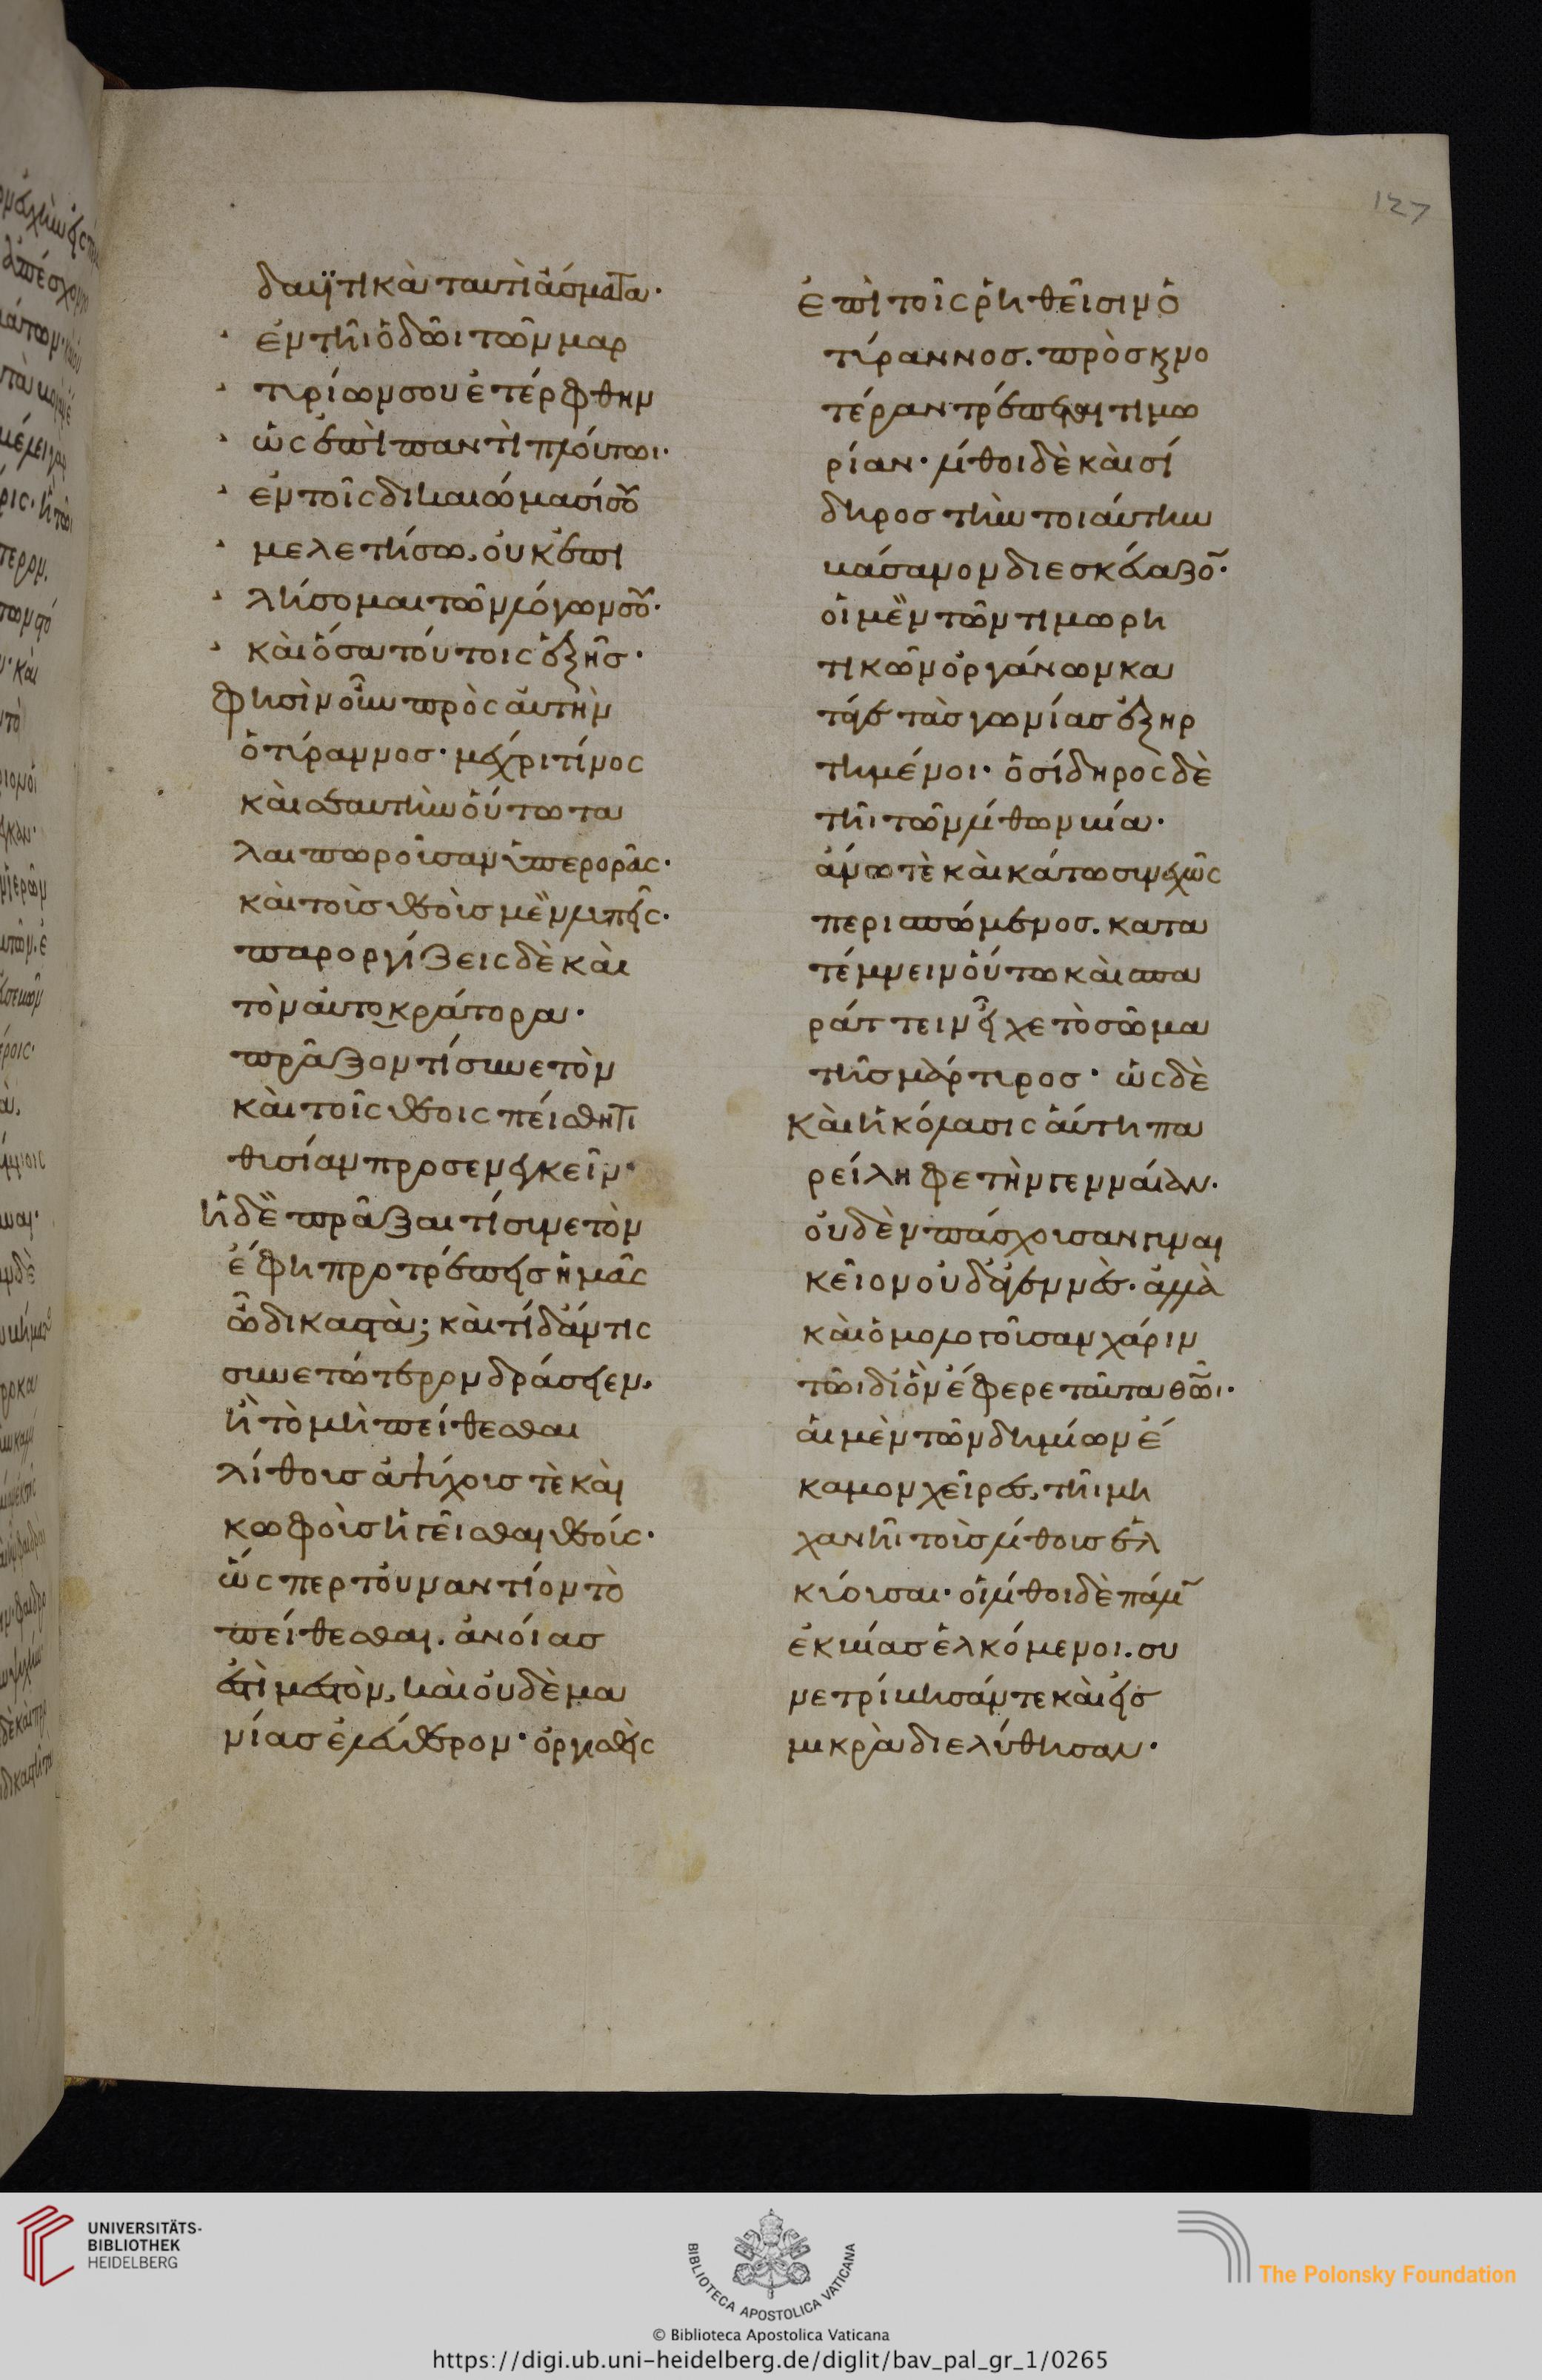 127
δαυϊτικὰ ταυτὶ ἄσματα·
ἐν τῆι ὁδῶι τῶν μαρ
τυρίων σου ἐτέρφθην
ὡς ἐπὶ παντὶ πλούτωι·
ἐν τοῖς δικαιώμασί σου
μελετήσω, οὐκ ἐπι
λήσομαι τῶν λόγων σου·
καὶ ὅσα τούτοις ἑξῆς·
φησὶν οὖν πρὸς αὐτὴν
ὁ τύραννος· μέχρι τίνος
καὶ σαυτὴν οὕτω τα
λαιπωροῦσαν ὑπερορᾶς·
καὶ τοὺς θεοὺς μὲν λυπεῖς·
παροργίζεις δὲ καὶ
τὸν αὐτοκράτορα·
πρᾶξον τί συνετὸν
καὶ τοῖς θεοῖς πείσθητι
θυσίαν προσενεγκεῖν·
ἡ δὲ πρᾶξαι τί συνετὸν
ἔφη προτρέπεις ἡμᾶς
ὦ δικαστὰ; καὶ τί δ' ἄν τις
συνετώτερον δράσειεν,
ἢ τὸ μὴ πείθεσθαι
λίθους ἀψύχους τὲ καὶ
κωφοὺς ἡγεῖσθαι θεούς·
ὥσπερ τοὐναντίον τὸ
πείθεσθαι. ἀνοίας
καὶ οὐδὲ μα
νίας ἐλεύθερον· ὀργισθεὶς
ἐπὶ τοῖς ῥηθεῖσιν ὁ
τύραννος. πρὸς καινο
τέραν τρέπεται τιμω
ρίαν· λίθοι δὲ καὶ σί
δηρος τὴν τοιαύτην
βάσανον διεσκεύαζον·
οἱ μὲν τῶν τιμωρη
τικῶν ὀργάνων κα
τὰ τὰς γωνίας ἐξηρ
τημένοι· ὁ σίδηρος δὲ
τῆι τῶν λίθων βία·
ἄνω τὲ καὶ κάτω συνεχῶς
περισπώμενος. κατα
τέμνειν οὕτω καὶ σπα
ράττειν εἶχε τὸ σῶμα
τῆς μάρτυρος· ὡς δὲ
καὶ ἡ κόλασις αὕτη πα
ρείληφε τὴν γενναίαν·
οὐδὲν πάσχουσαν γυναι
κεῖον οὐδ' ἀγεννὲς· ἀλλὰ
καὶ ὁμολογοῦσαν χάριν
τῶι δι' ὃν ἔφερε ταῦτα θεῶι·
αἱ μὲν τῶν δημίων ἔ
καμον χεῖρες, τῆι μη
χανῆι τοὺς λίθους ἕλ
κουσαι· οἱ λίθοι δὲ πάλιν
ἐκ βίας ἑλκόμενοι. συ
νετρίβησάν τε καὶ εἰς
μικρὰ διελύθησαν·
UNIVERSITÄTS-
BIBLIOTHEK
HEIDELBERG
BIBLIOTECA APOSTOLICA VATICANA
The Polonsky Foundation
© Biblioteca Apostolica Vaticana
https://digi.ub.uni-heidelberg.de/diglit/bav_pal_gr_1/0265